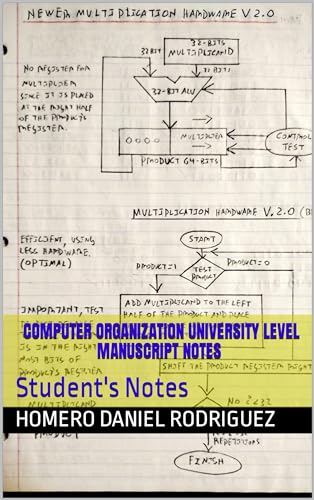 NEWER MULTIPLICATION HARDWARE V.2.0
32-BITS
MULTIPLICAND
32BIT
NO REGISTER FOR
MULTIPLIER
SINCE IT IS PLACED
AT THE RIGHT HALF
OF THE PRODUCT'S
REGISTER.
32-BIT ALU
MULTIPLIER
CONTROL
TEST
PRODUCT 64-BITS
MULTIPLICATION HARDWARE V.2.0
START
EFFICIENT, USING
LESS HARDWARE.
(OPTIMAL)
PRODUCT=1
TEST
PRODUCT
PRODUCT=0
IMPORTANT, TEST
ADD MULTIPLICAND TO THE LEFT
HALF OF THE PRODUCT AND PLACE
COMPUTER ORGANIZATION UNIVERSITY LEVEL
MANUSCRIPT NOTES
IS IN THE RIGHT
MOST BITS OF
SHIFT THE PRODUCT REGISTER RIGHT
Student's Notes
NO <32
HOMERO DANIEL RODRIGUEZ
PRODUCT
REPETITIONS
FINISH